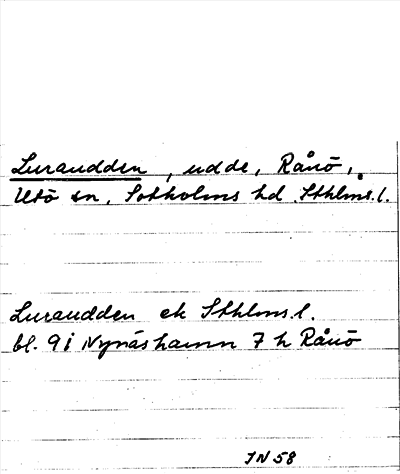 Luraudden, udde, Rånö,
Utö sn, Sotholms hd, Sthlms.l.
Luraudden ek Sthlms.l.
bl. 9i Nynäshamn 7 h Rånö
JN 58